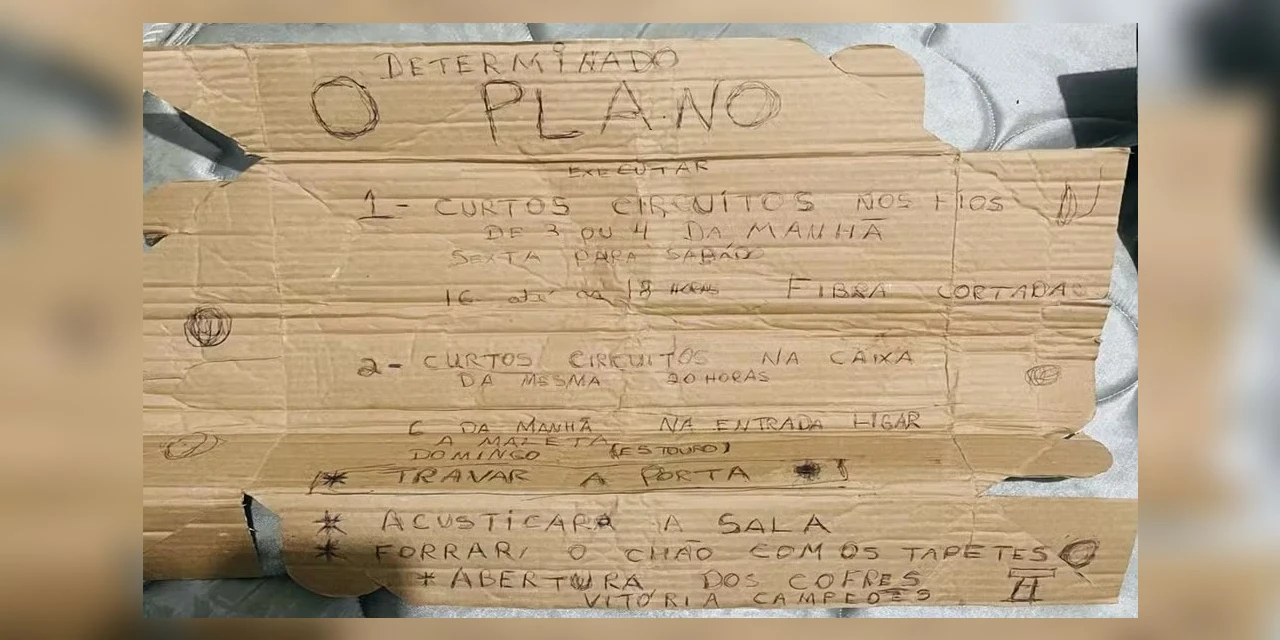 DETERMINADO
O PLANO
EXECUTAR
1- CURTOS CIRCUÍTOS NOS FIOS
DE 3 OU 4 DA MANHÃ
SEXTA PARA SABÁDO
16 até as 18 HORAS FIBRA CORTADA
2- CURTOS CIRCUITOS NA CAIXA
DA MESMA 20 HORAS
6 DA MANHÃ NA ENTRADA LIGAR
A MALETA
DOMINGO (ESTOURO)
* TRAVAR A PORTA *
* ACUSTICARA A SALA
* FORRAR, O CHÃO COM OS TAPETES
* ABERTURA DOS COFRES
VITÓRIA CAMPEÕES